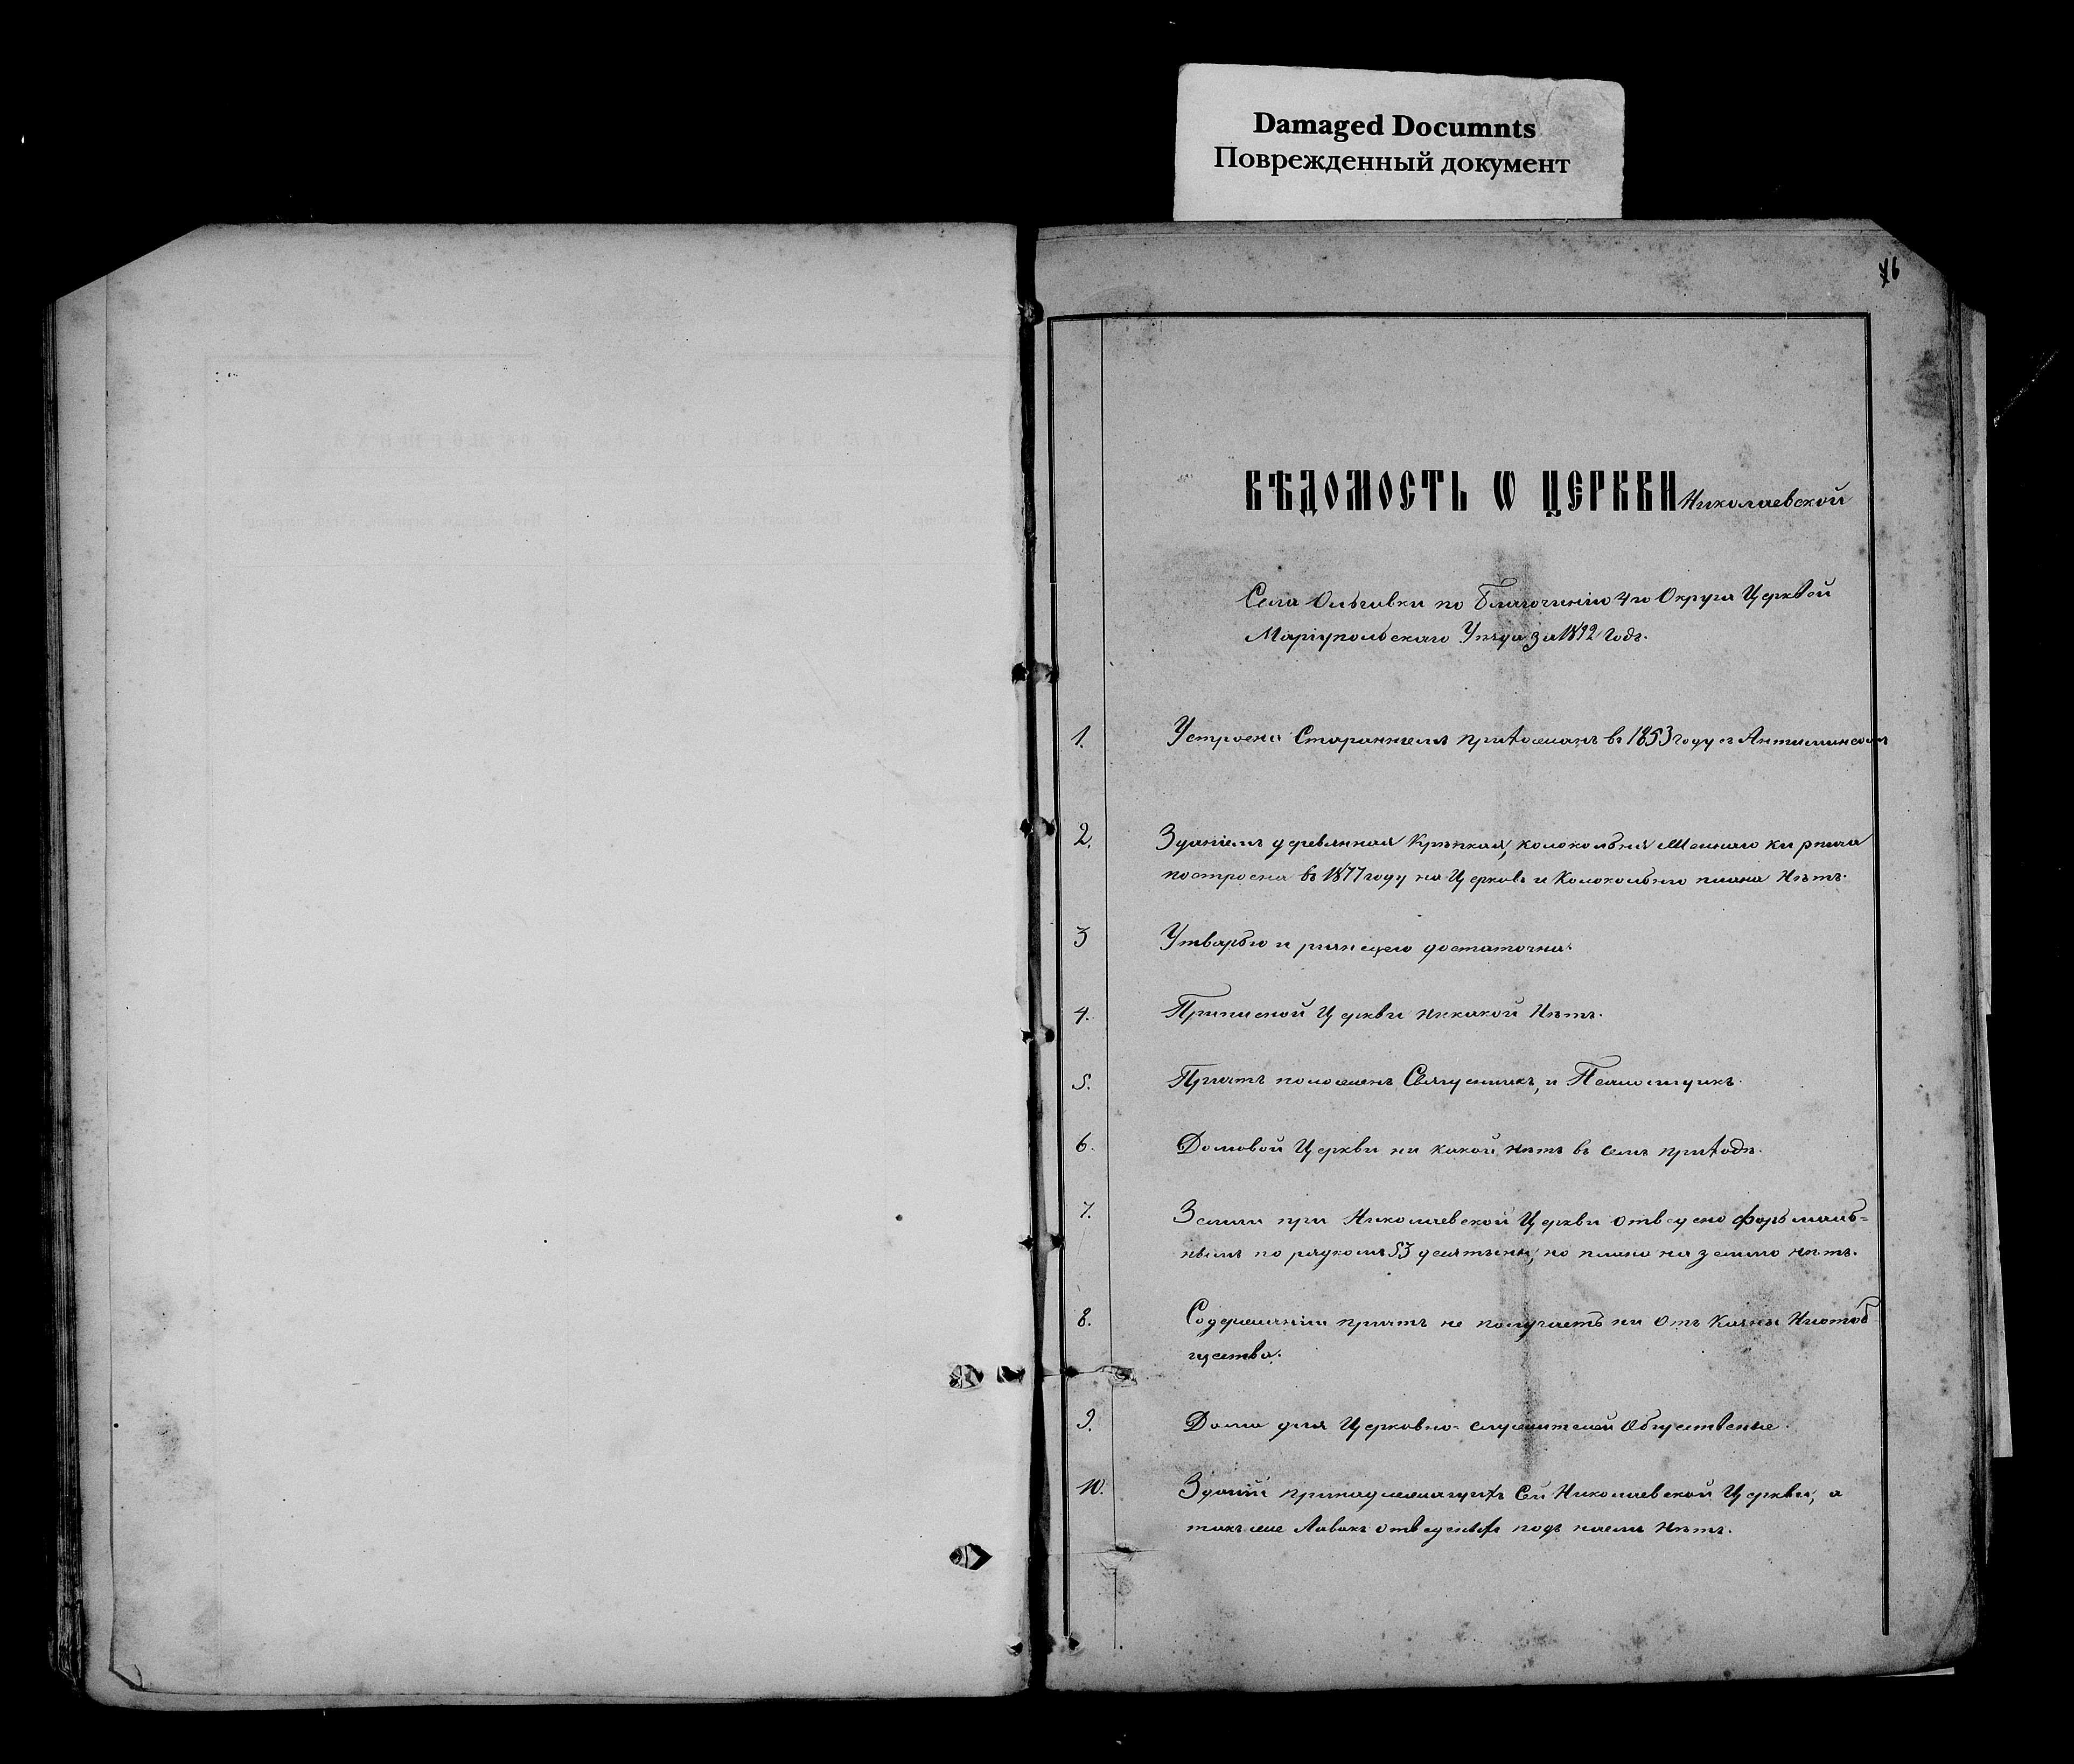 Damaged Documnts
Поврежденный документ
76
ВѢДОМОСТЬ Ѡ ЦЕРКВИ Николаевской
Села Ольгивки по Благочинію 4го Округа Церквей
Маріупольскаго Уѣзда за 1892 годъ.
1. Устроена Стараніемъ прихожанъ въ 1853 году съ Антиминсомъ
2. Зданіемъ деревянная крѣпкая, колокольня Женнаго кирпича
построена въ 1877 году на Церковь и Колокольню плана Нѣтъ.
3 Утварью и ризницею достаточна.
4. Приписной Церкви никакой Нѣтъ.
5. Причтъ положенъ Священникъ, и Псаломщикъ.
6. Домовой Церкви ни какой нѣтъ въ семъ приходѣ.
7. Земли при Николаевской Церкви отведено формаль=
нымъ порядкомъ 53 десятины, но плана на землю нѣтъ.
8. Содержанія причтъ не получаетъ ни отъ Казны Ниотоб
щества.
9. Дома для Церковно-служителей Общественые.
10. Зданій принадлежащихъ Сей Николаевской Церкви, а
также Лавокъ отведеныхъ подъ наемъ Нѣтъ.